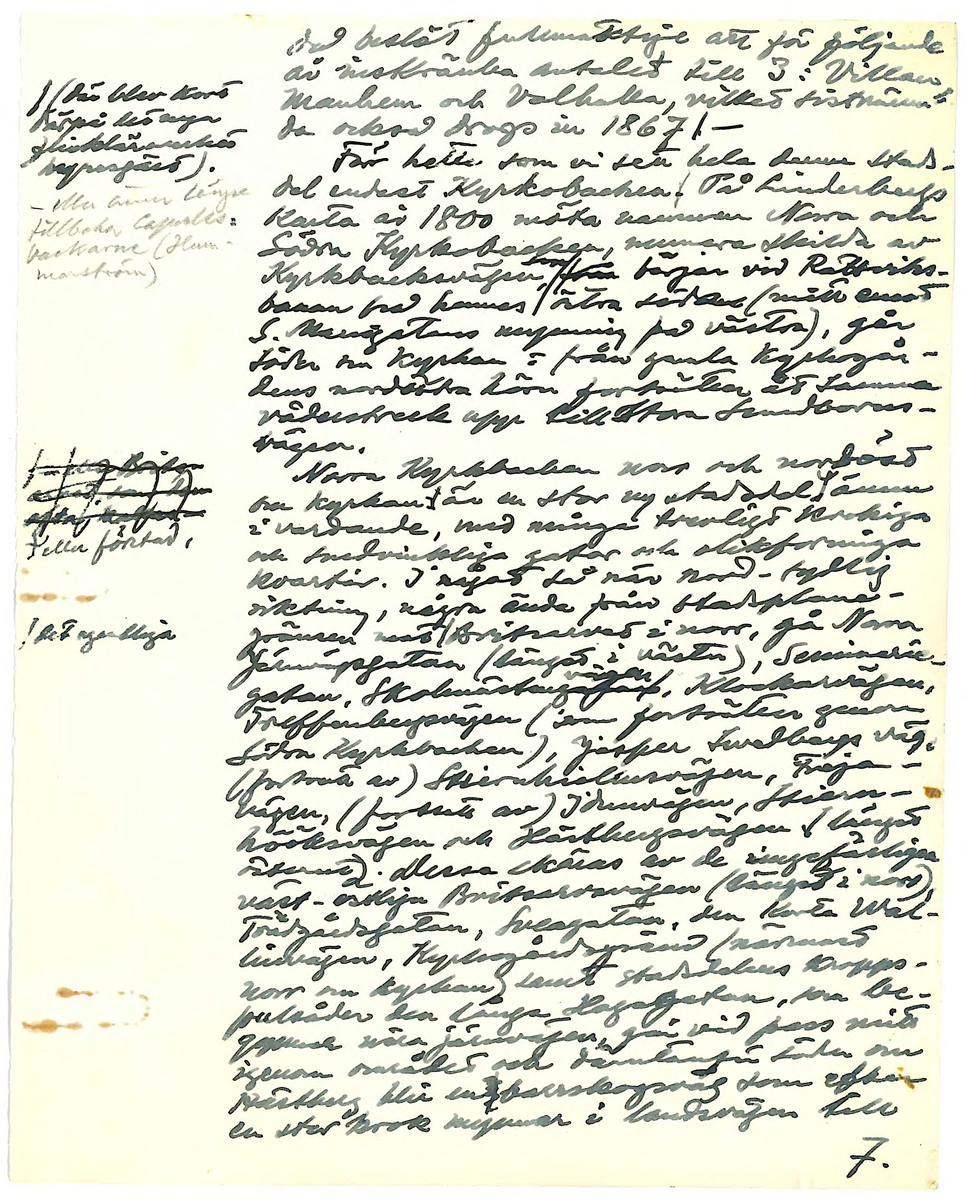 det beslöt fullmäktige att för följande
år inskränka antalet till 3: Villan
Manhem och Valhalla, vilket sistnämn-
da också drogs in 1867/—
Förr hette som vi sett hela denna stads-
del endast Kyrkobacken. På Linderbergs
karta år 1800 möta namnen Norra och
Södra Kyrkobacken, numera skilda av
Kyrkbacksvägen, som börjar vid Rättviks-
banan på hennes östra sida (mitt emot
S. Mariegatans mynning på västra), går
söder om kyrkan & från gamla kyrkogår-
dens nordöstra hörn fortsätter åt samma
väderstreck upp till Stora Sundborns-
vägen.
Norra Kyrkbacken norr och nordöst
om kyrkan är en stor ny stadsdel ännu
i vardande, med många trevligt krokiga
och snedvinkliga gator och olikformiga
kvarter. I något så när nord-sydlig
riktning, några ända från stadsplane-
gränsen mot Britsarvet i norr, gå Norra
Järnvägsgatan (längst i väster), Seminarie-
gatan, Skolmästarvägen, Klockarvägen,
Treffenbergsvägen (som fortsätter genom
Södra Kyrkbacken), Jesper Swedbergs väg,
(fortsatt av) Stiernhielmsvägen, Freja-
vägen, (fortsatt av) Idunvägen, Stiern-
hööksvägen och Hästbergsvägen (längst
österut). Dessa skäras av de ungefärligen
väst-östliga Britsarvsvägen (längst i norr),
Trädgårdsgatan, Sveagatan, den korta Wal-
linvägen, Kyrkogårdsgränd (närmast
norr om kyrkan) samt stadsdelens kropps-
pulsåder den långa Hagagatan, som be-
gynner nära järnvägen, går vid pass mitt
igenom området och därutanför söder om
Hästberg blir en barrskogsväg som efter
en stor krok mynnar i landsvägen till
7.
/(där blev kort
därpå
småskollärarinne
).
— eller ännu längre
tillbaka Capells-
backarne (Ham-
marström)
eller förstad,
! det egentliga